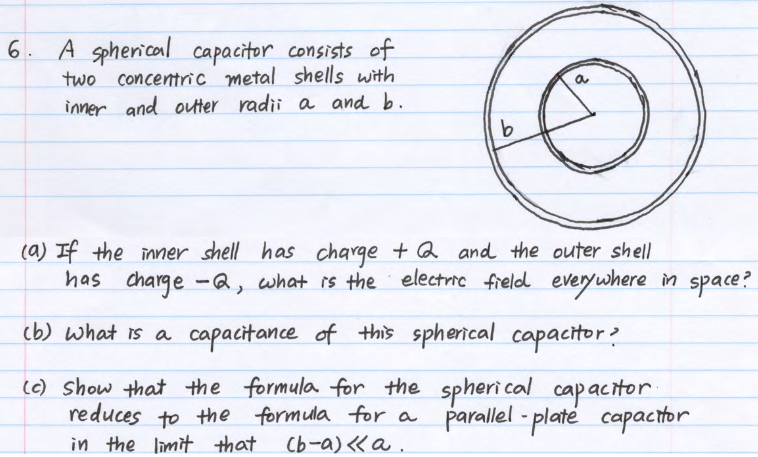 6. A spherical capacitor consists of
two concentric metal shells with
inner and outter radii a and b.
a
b
(a) If the inner shell has charge +Q and the outer shell
has charge -Q, what is the electric field everywhere in space?
(b) What is a capacitance of this spherical capacitor?
(c) Show that the formula for the spherical capacitor
reduces to the formula for a parallel-plate capacitor
in the limit that (b-a) << a.